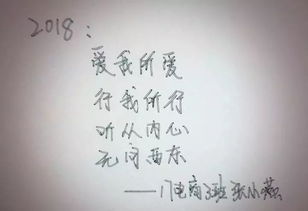 2018：
爱我所爱
行我所行
听从内心
无问西东
——17电商3班 张小燕